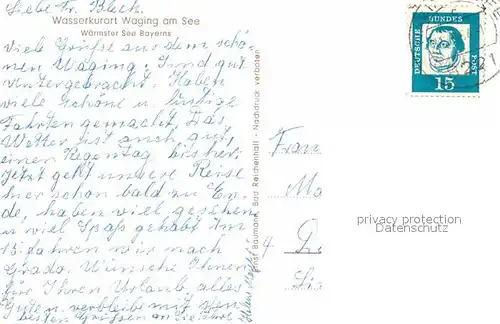 Liebe Fr. Bleck.
Wasserkurort Waging am See
Wärmster See Bayerns
Viele Grüsse aus dem schö-
nen Waging. Sind gut
untergebracht. Haben
viele schöne u. lustige
Fahrten gemacht. Das
Wetter ist auch gut,
einen Regentag bisher.
Jetzt geht unsere Reise
hier schon bald zu En-
de, haben viel gesehen
u viel Spaß gehabt. Im
15 fahren wir nach
Grado. Wünsche Ihnen
für Ihren Urlaub alles
Gute. verbleibe mit den
besten Grüssen an Sie Ihre
Ernst Baumann, Bad Reichenhall - Nachdruck verboten
DEUTSCHE
BUNDES
POST
15
Frau
Ma
4.
privacy protection
Datenschutz